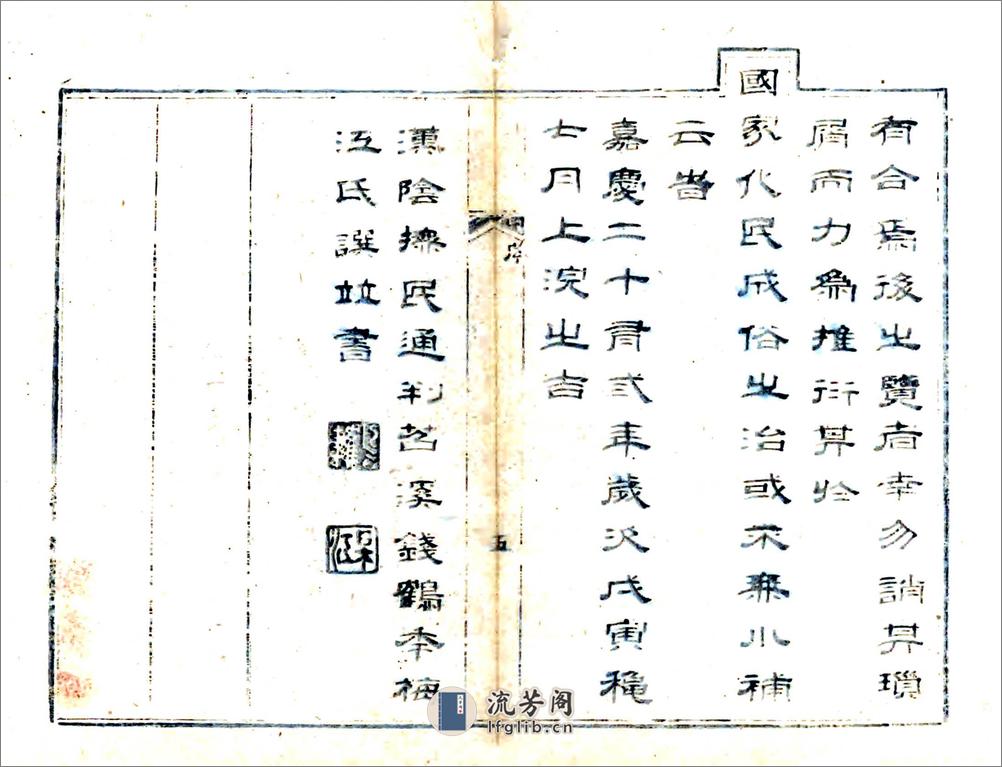 有合焉後之覽者幸勿誚其瑣
屑而力為推衍其於
國家化民成俗之治或不無小補
云者
嘉慶二十有弎年歲次戊寅穐
七月上浣之吉
序
五
漢陰撫民通判苕溪錢鶴年梅
江氏譔竝書
流芳阁
lfglib.cn